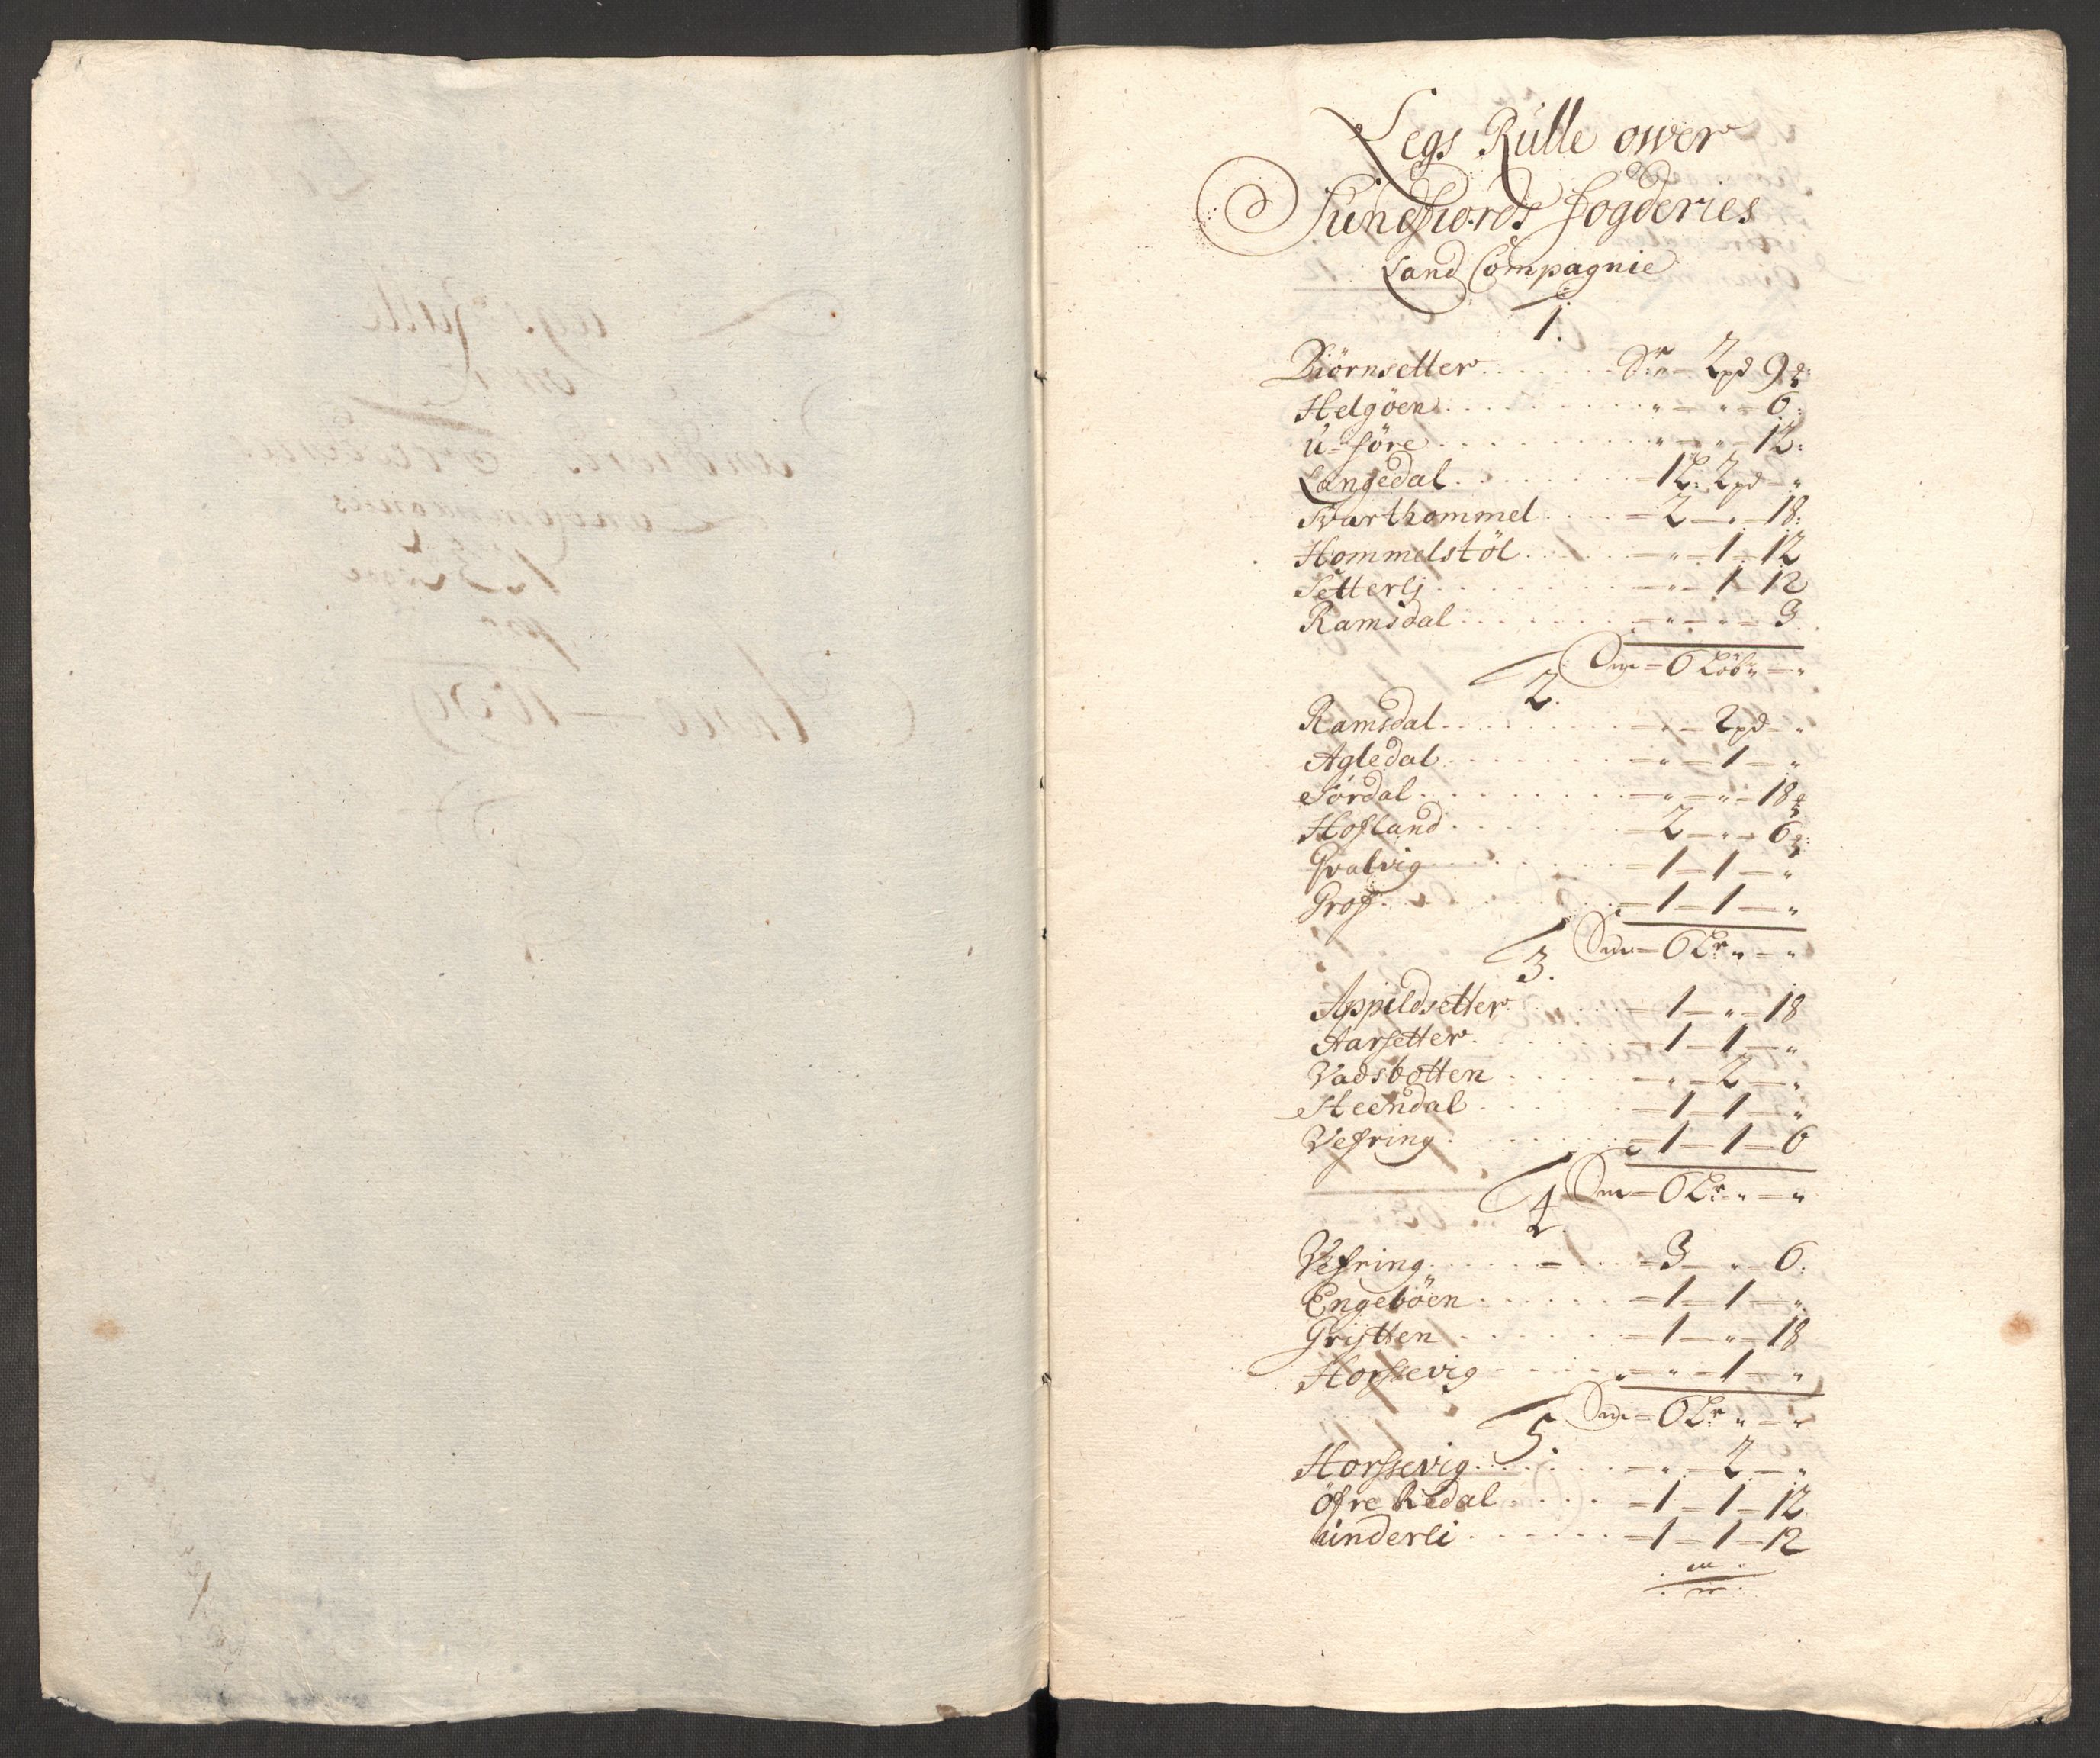 Legs Rulle ower
Sundfiords fogderies
Land Compagnie
1.
Biörnsetter . . . . . . . " – 2pd 9
Helgöen . . . . . . . . " – " – 6:
U-före . . . . . . . . " – " – 12:
Langedal . . . . . . – 1L: 2pd – "
Svarthommel . . . . – 2 – " – 18:
Hommelstöl . . . . . – " – 1 – 12
Setterlj . . . . . . . – " – 1 – 12
Ramsdal . . . . . . . – " – " – 3
Sum – 6 Löb " – "
2.
Ramsdal . . . . . . . – " – 2pd – "
Agledal . . . . . . . – " – 1 – "
Sørdal . . . . . . . . – " – " – 18
Hofland . . . . . . . – 2 – " – 6
Qvalvig . . . . . . . – 1 – 1 – "
Grof . . . . . . . . – 1 – 1 – "
Sum – 6 Lr " – "
3.
Appildsetter . . . . . – 1 – " – 18
Aarsetter . . . . . . – 1 – 1 – "
Vadsbotten . . . . . – " – 2 – "
Steendal . . . . . . – 1 – 1 – "
Vefring . . . . . . . – 1 – 1 – 6
Sum – 6 Lr " – "
4.
Vefring . . . . – . . – 3 – " – 6:
Engeböen . . . . . . – 1 – 1 – "
Grytten . . . . . . . – 1 – " – 18
Horssevig . . . . . . " – " – 1 – "
Sum – 6 Lr " – "
5.
Horssevig . . . . . . – " – 2 – "
Öfre Redal . . . . . – 1 – 1 – 12
Underli . . . . . . . – 1 – 1 – 12